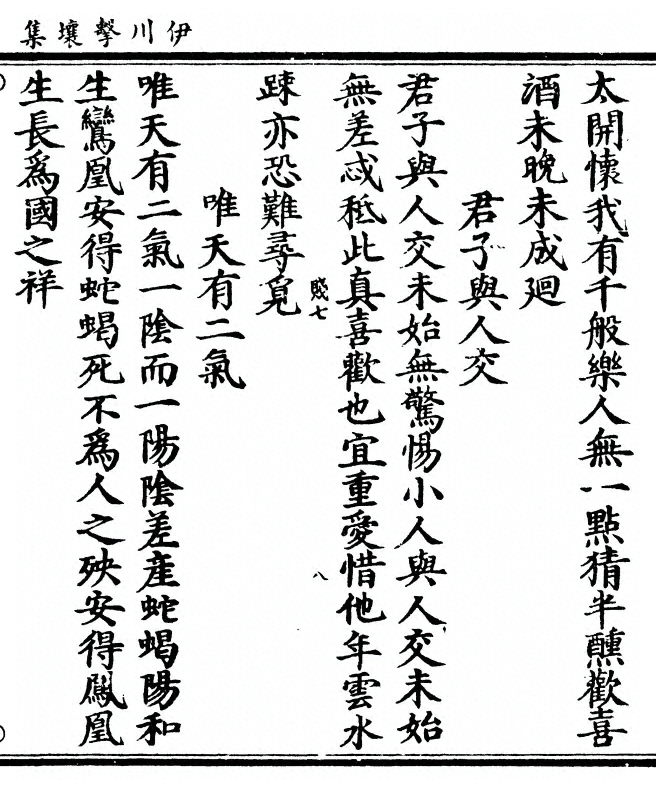 伊川擊壤集
太開懷我有千般樂人無一點猜半醺歡喜
酒未晚未成廻
君子與人交
君子與人交未始無驚惕小人與人交未始
無差忒秪此真喜歡也宜重愛惜他年雲水
踈亦恐難尋覓
賤七
八
唯天有二氣
唯天有二氣一陰而一陽陰差産蛇蝎陽和
生鸞凰安得蛇蝎死不爲人之殃安得鳳凰
生長爲國之祥